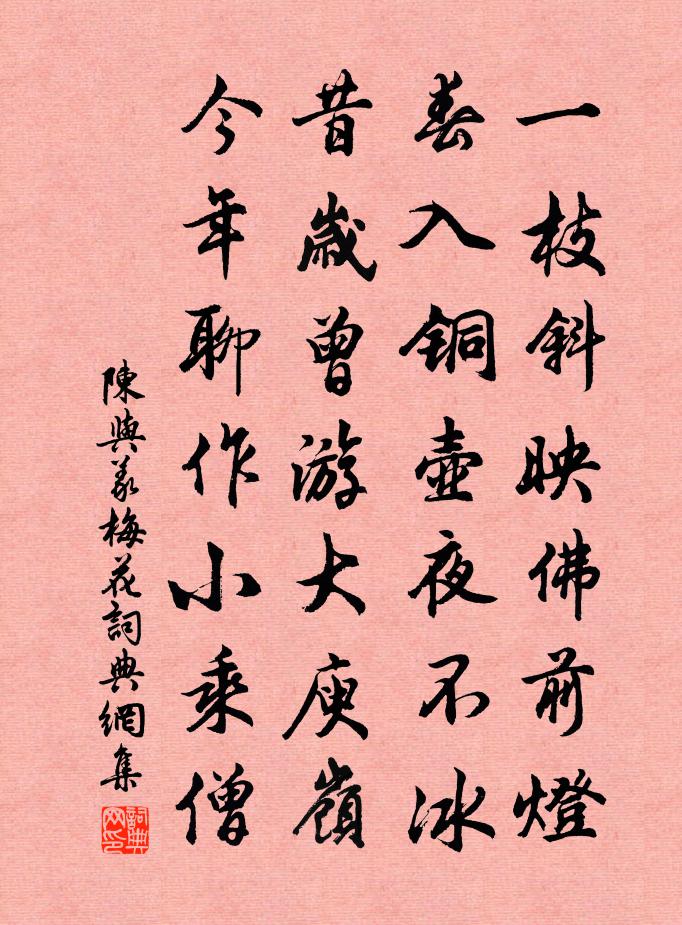 一枝斜映佛前燈
春入铜壺夜不冰
昔歲曾游大庾嶺
今年聊作小乘僧
陳與義梅花詞典網集
詞典网印